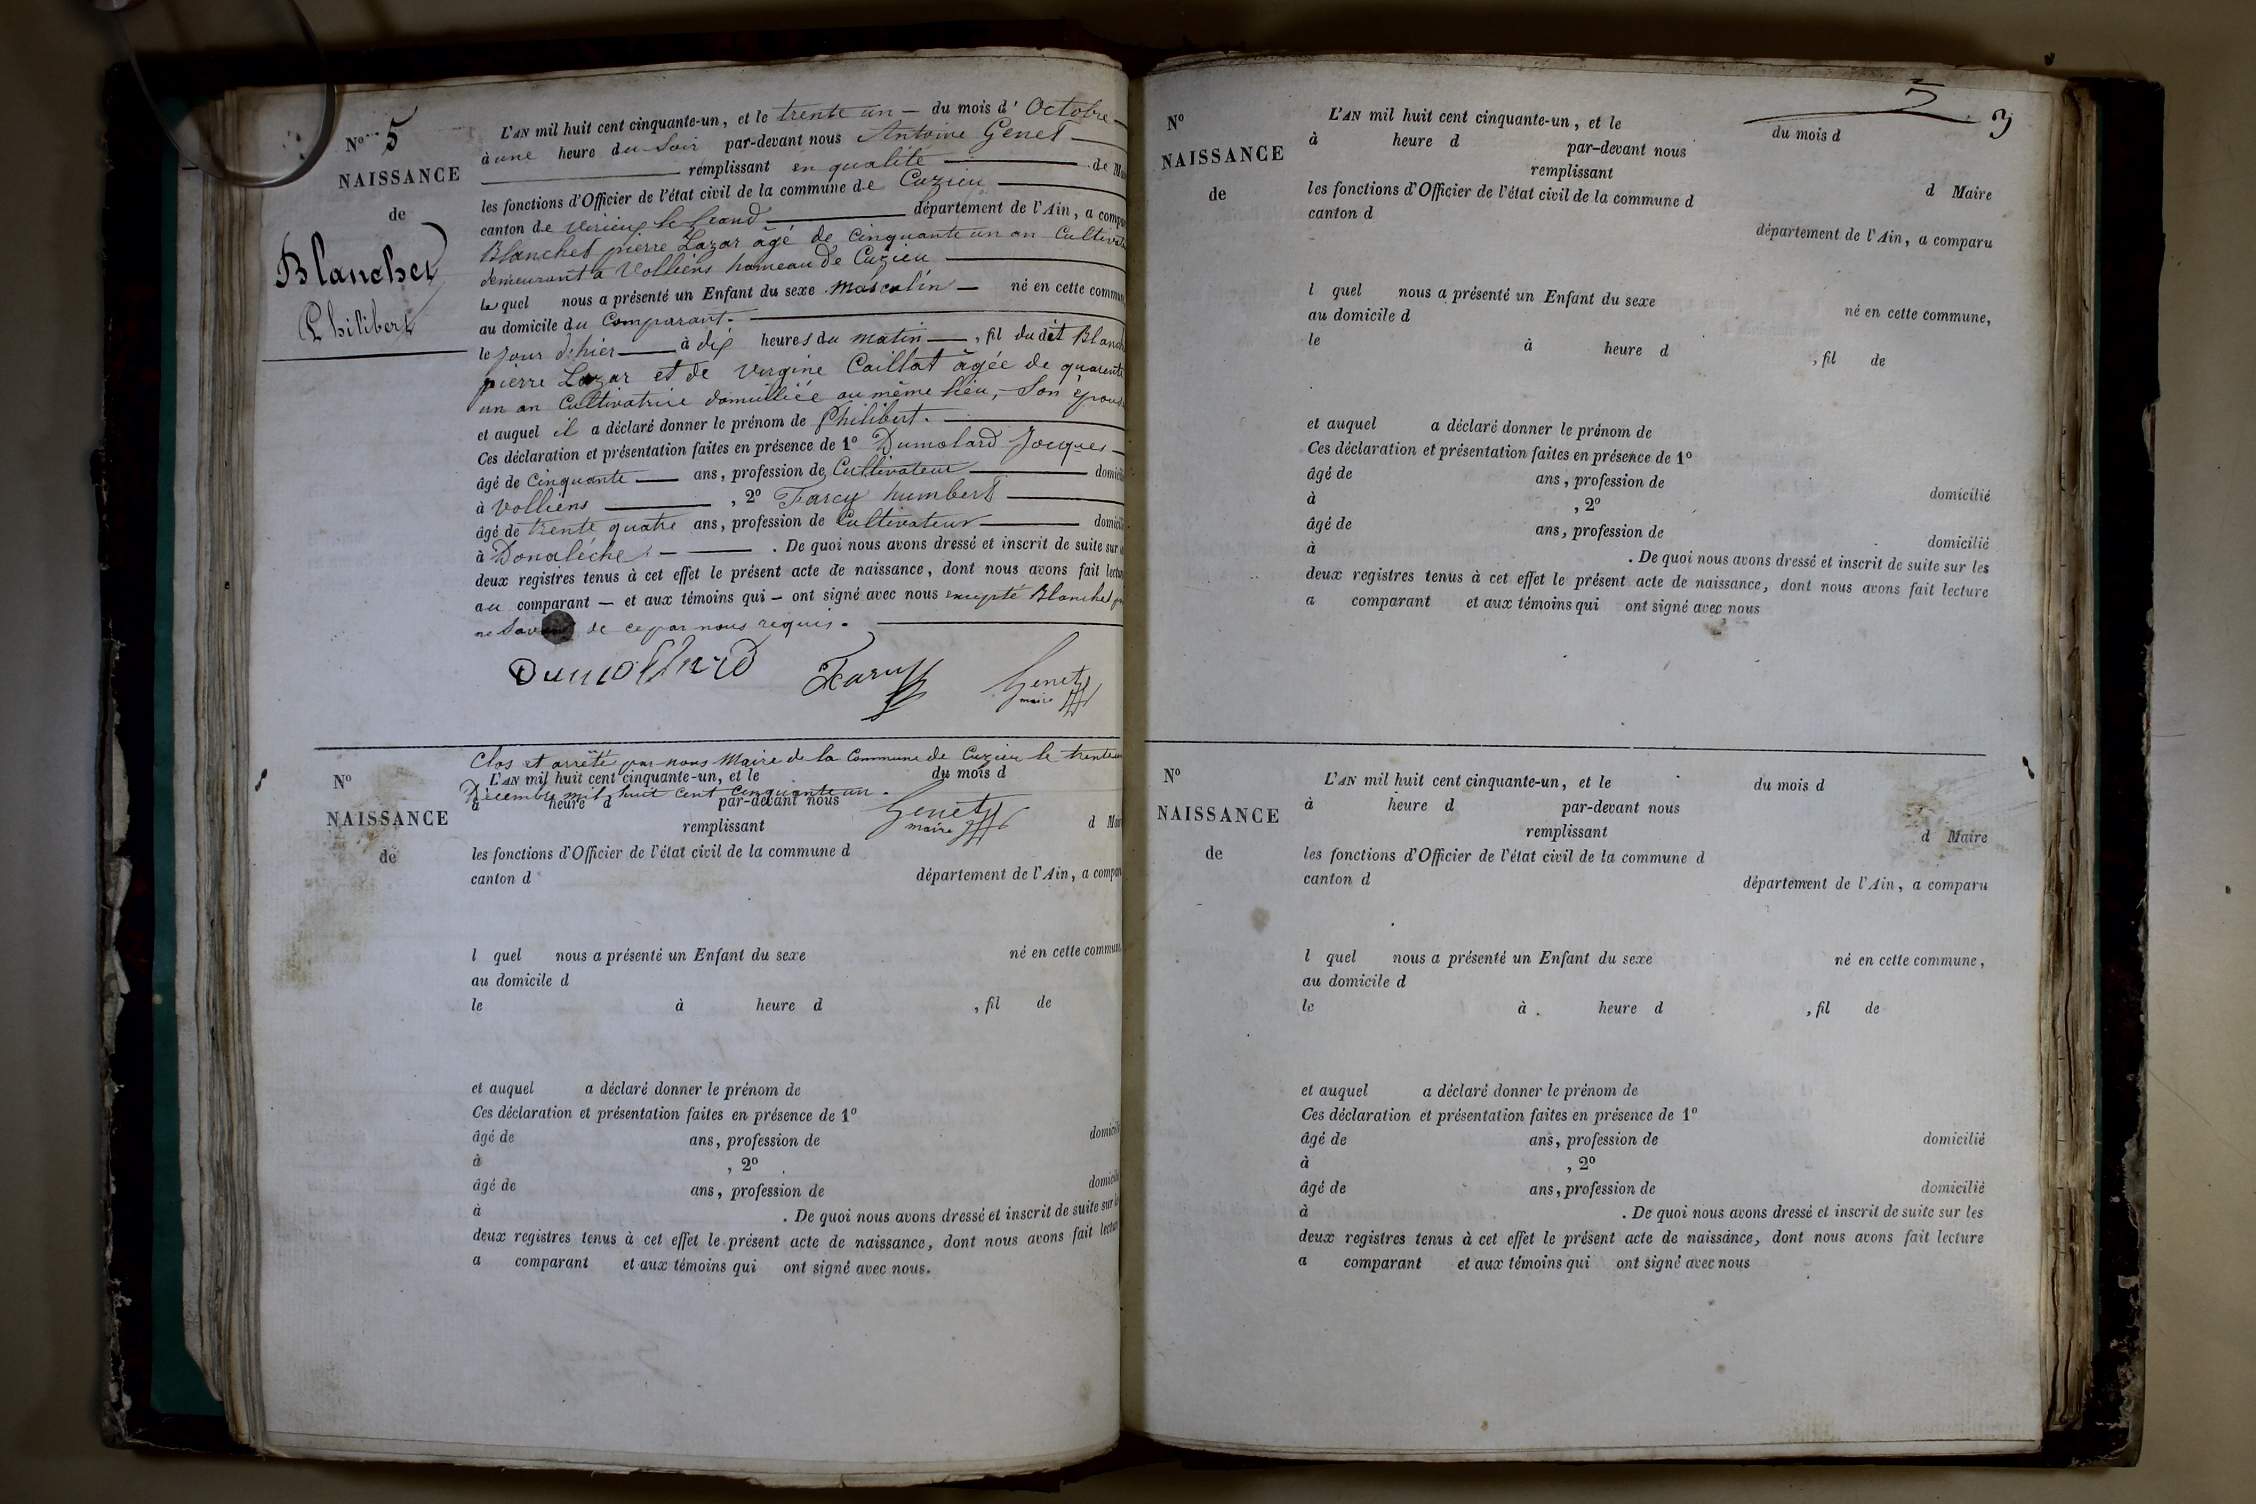 N° 5
NAISSANCE
de
Blanchet
Philibert
L'AN mil huit cent cinquante-un, et le trente un — du mois d' Octobre
à une heure du Soir par-devant nous Antoine Genet
remplissant en qualité de
les fonctions d'Officier de l'état civil de la commune de Cuzieu
canton de Virieu le Grand département de l'Ain, a
Blanchet pierre Lazar âgé de Cinquante un an
demeurant a Volliens hameau de Cuzieu
le quel nous a présenté un Enfant du sexe Masculin — né en cette
au domicile du Comparant.
le Jour d'hier à dix heures du matin, fil du dit
pierre Lazar et de Vergine Caillat âgée de quarente
un an Cultivatrice domicilliée au même lieu, Son
et auquel il a déclaré donner le prénom de Philibert.
Ces déclaration et présentation faites en présence de 1° Dumolard Jacques
âgé de Cinquante ans, profession de Cultivateur
à Volliens, 2° Farcy humbert
âgé de trente quatre ans, profession de Cultivateur
à Donalèche. De quoi nous avons dressé et inscrit de suite sur
deux registres tenus à cet effet le présent acte de naissance, dont nous avons fait
au comparant — et aux témoins qui — ont signé avec nous excepté Blanchet
ne de ce par nous requis.
Dumollard Farcy Genet
maire
Clos et arrêté par nous Maire de la Commune de Cuzieu le
Décembre mil huit cent cinquante un.
Genet
maire
N°
NAISSANCE
de
L'AN mil huit cent cinquante-un, et le du mois d
à heure d par-devant nous
remplissant d
les fonctions d'Officier de l'état civil de la commune d
canton d département de l'Ain, a
l quel nous a présenté un Enfant du sexe né en cette
au domicile d
le à heure d , fil de
et auquel a déclaré donner le prénom de
Ces déclaration et présentation faites en présence de 1°
âgé de ans, profession de
à , 2°
âgé de ans, profession de
à . De quoi nous avons dressé et inscrit de suite sur
deux registres tenus à cet effet le présent acte de naissance, dont nous avons fait
a comparant et aux témoins qui ont signé avec nous.
N°
NAISSANCE
de
L'AN mil huit cent cinquante-un, et le du mois d
à heure d par-devant nous
remplissant d Maire
les fonctions d'Officier de l'état civil de la commune d
canton d département de l'Ain, a comparu
l quel nous a présenté un Enfant du sexe né en cette commune,
au domicile d
le à heure d , fil de
et auquel a déclaré donner le prénom de
Ces déclaration et présentation faites en présence de 1°
âgé de ans, profession de domicilié
à , 2°
âgé de ans, profession de domicilié
à . De quoi nous avons dressé et inscrit de suite sur les
deux registres tenus à cet effet le présent acte de naissance, dont nous avons fait lecture
a comparant et aux témoins qui ont signé avec nous
N°
NAISSANCE
de
L'AN mil huit cent cinquante-un, et le du mois d
à heure d par-devant nous
remplissant d Maire
les fonctions d'Officier de l'état civil de la commune d
canton d département de l'Ain, a comparu
l quel nous a présenté un Enfant du sexe né en cette commune,
au domicile d
le à heure d , fil de
et auquel a déclaré donner le prénom de
Ces déclaration et présentation faites en présence de 1°
âgé de ans, profession de domicilié
à , 2°
âgé de ans, profession de domicilié
à . De quoi nous avons dressé et inscrit de suite sur les
deux registres tenus à cet effet le présent acte de naissance, dont nous avons fait lecture
a comparant et aux témoins qui ont signé avec nous